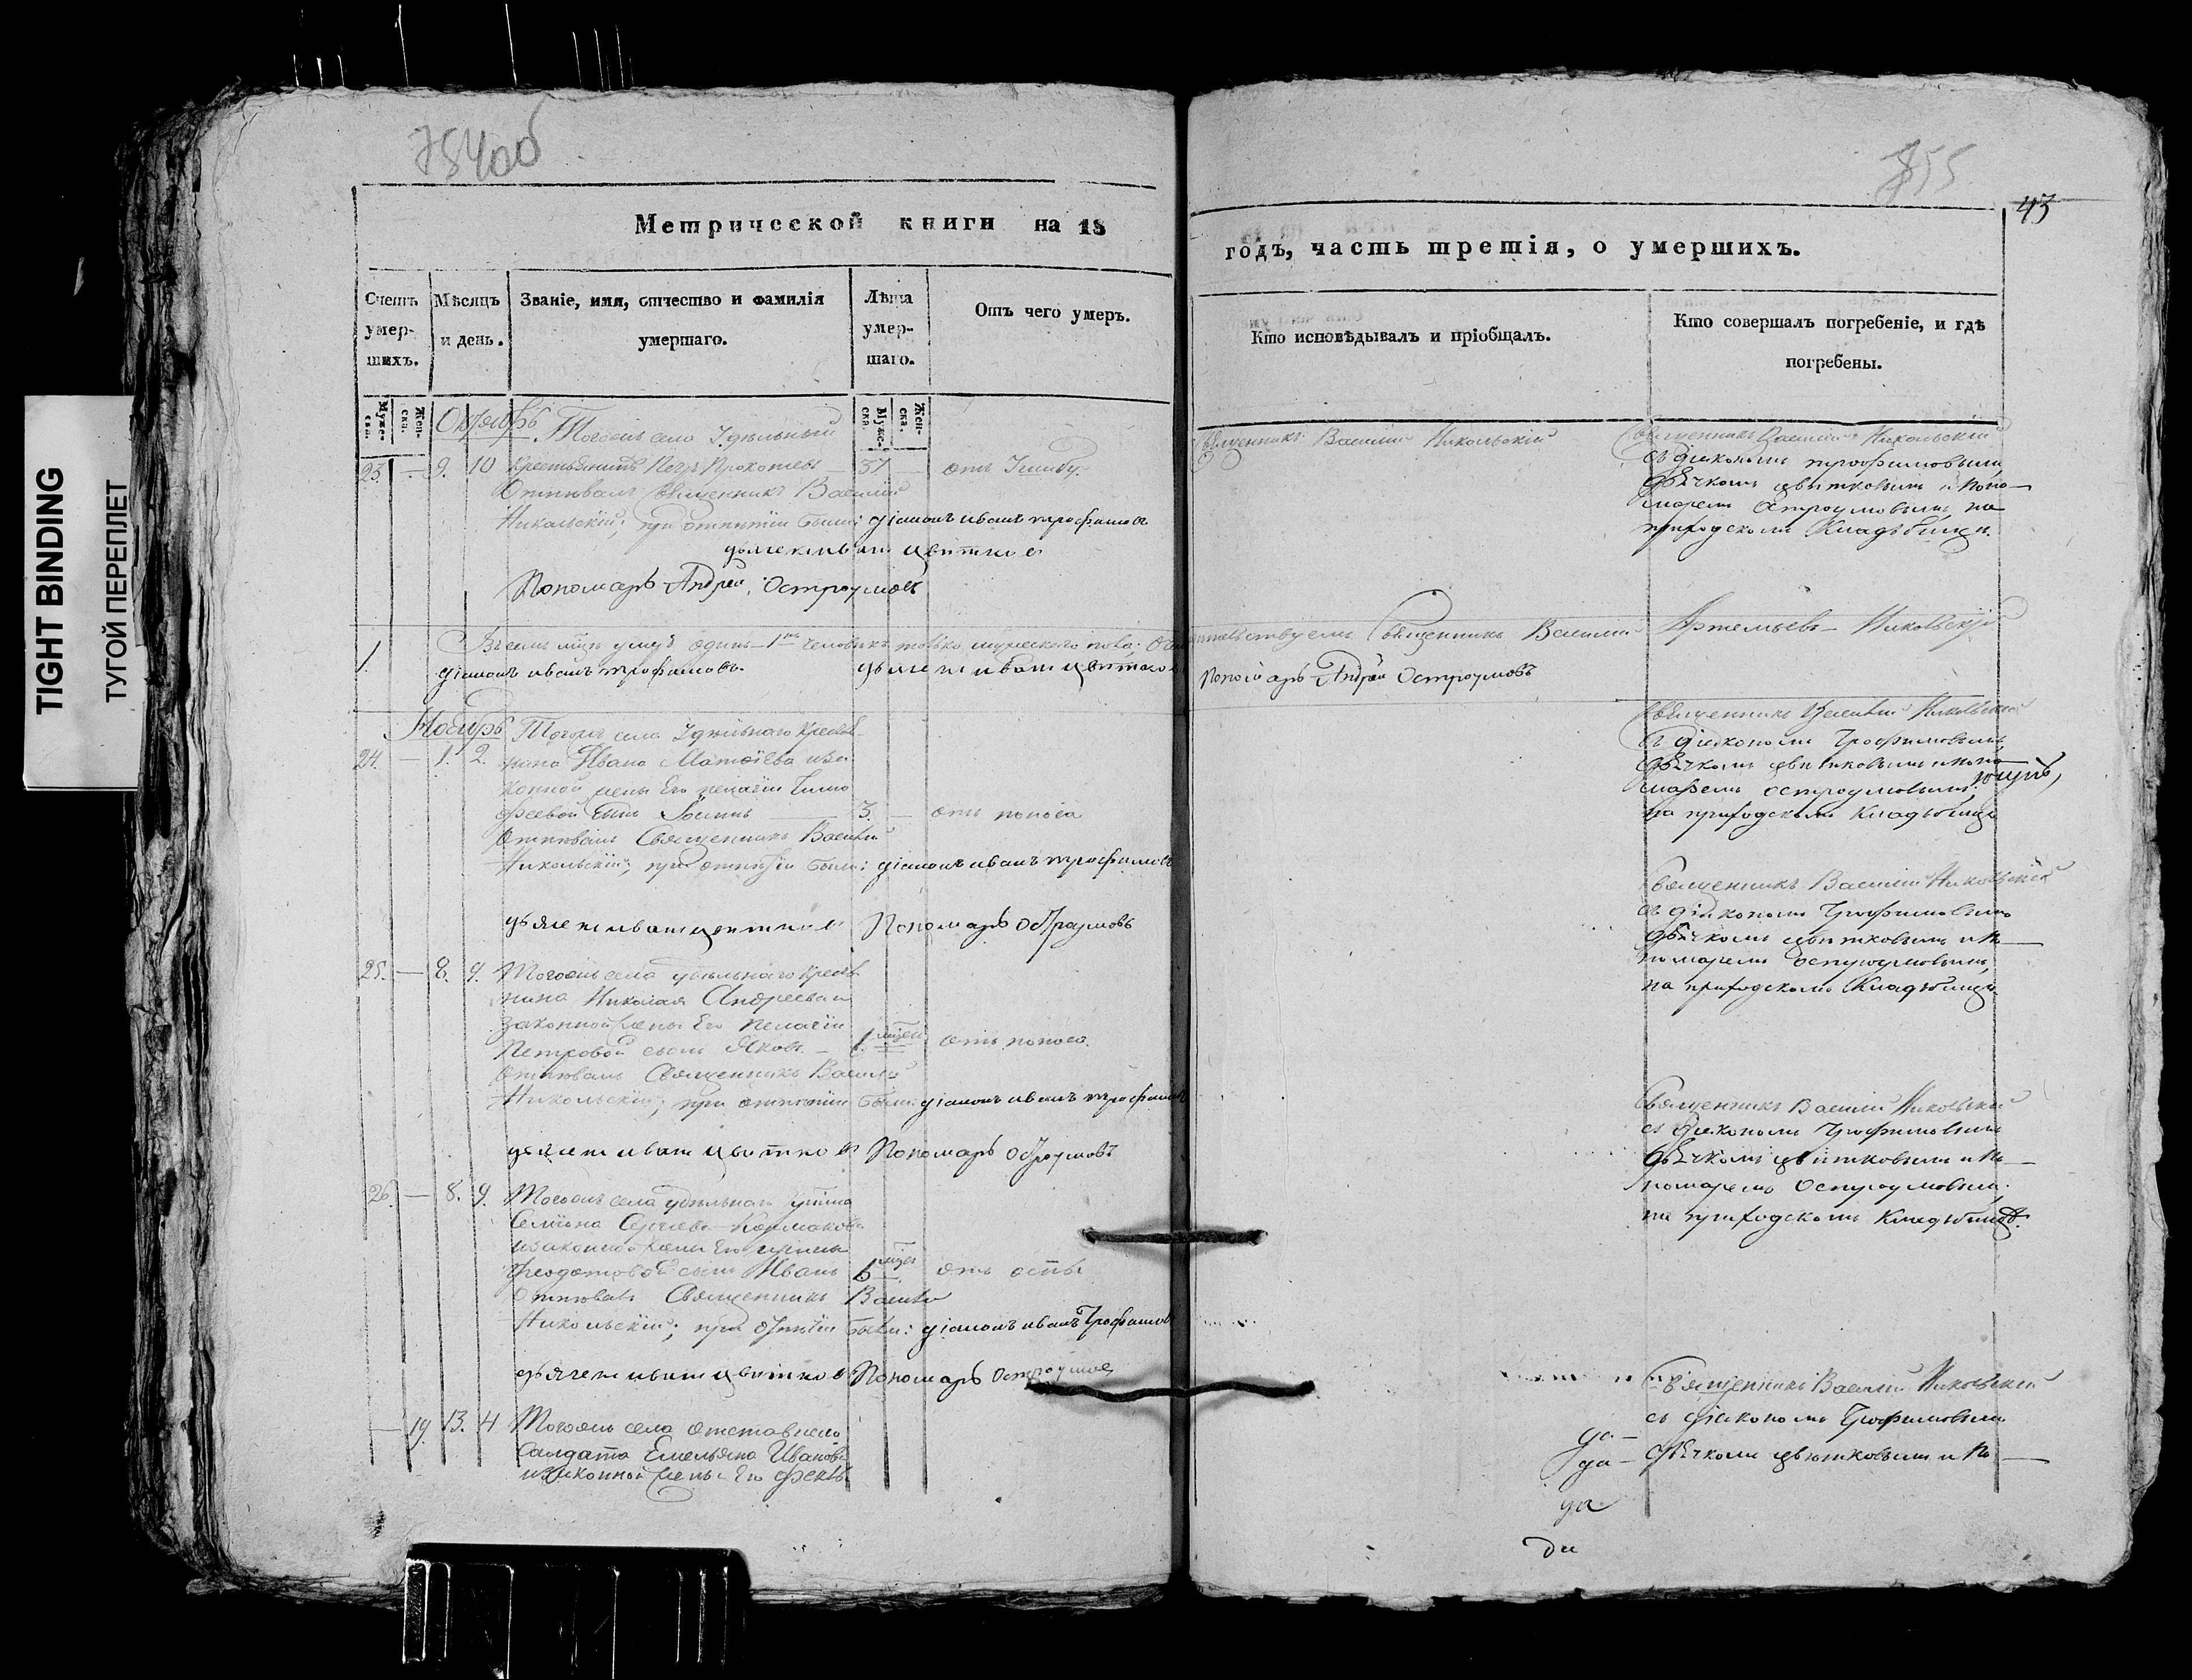 TIGHT BINDING
ТУГОЙ ПЕРЕПЛЕТ
784об
Метрической книги на 18
Счетъ умер-шихъ.
Мѣсяцъ и день.
Званіе, имя, отчество и фамилія умершаго.
Лѣта умер-шаго.
Отъ чего умеръ.
Муже-ска.
Жен-ска.
Муже-ска.
Жен-ска.
Октябрь
Тогожъ села Удѣльный
23. — 9. 10 крестьянинъ Петръ Прокопьевъ — 37 —
Отпѣвалъ Священникъ Василій
Никольскій; при отпѣтіи были: діаконъ иванъ трофимовъ
дьячекъ иванъ цвѣтковъ
Пономарь Андрей Остроумовъ
1. Въ семъ м҃цѣ умеръ одинъ — 1 человѣкъ только мужескаго пола;
діаконъ иванъ трофимовъ. дьячекъ иванъ цвѣтковъ
Ноябрь Тогожъ села Удѣльнаго крестья-
24. — 1. 2. нина Ивана Матвѣева и за-
конной жены Его пелагіи Тимо
фѣевой сынъ — 3. — отъ поноса
Отпѣвалъ Священникъ Василій
Никольскій; при отпѣтіи были: діаконъ иванъ трофимовъ
дьячекъ иванъ цвѣтковъ Пономарь Остроумовъ
25. — 8. 9. Тогожъ села удѣльнаго крестья
нина Николая Андреева и
законной жены Его пелагіи
Петровой сынъ Яковъ — отъ поноса.
Отпѣвалъ Священникъ Василій
Никольскій; при отпѣтіи были: діаконъ иванъ трофимовъ
дьячекъ иванъ цвѣтковъ Пономарь Остроумовъ
26. — 8. 9. Тогожъ села удѣльнаго
Семіона Сергѣева
изаконной жены Его
Ѳеодотовой сынъ Иванъ 6 отъ оспы
Отпѣвалъ Священникъ Василій
Никольскій; при отпѣтіи были: діаконъ иванъ Трофимовъ
дьячекъ иванъ цвѣтковъ Пономарь Остроумовъ
— 19. 13. 14 Тогожъ села отставнаго
Салдата Емельяна Иванова
изаконной жены Его
855
43
годъ, часть третія, о умершихъ.
Кто исповѣдывалъ и пріобщалъ.
Кто совершалъ погребеніе, и гдѣ погребены.
Священникъ Василій Никольскій
Священникъ Василій Никольскій
съ діакономъ трофимовымъ
дьячкомъ цвѣтковымъ и поно-
маремъ Остроумовымъ на
приходскомъ Кладбищѣ.
Священникъ Василій Артемьевъ Никольскій
Пономарь Андрей Остроумовъ
Священникъ Василій Никольскій
съ діакономъ Трофимовымъ
дьячкомъ цвѣтковымъ и поно
маремъ остроумовымъ
на приходскомъ Кладбищѣ
Священникъ Василій Никольскій
съ діакономъ Трофимовымъ
дьячкомъ цвѣтковымъ и по—
номаремъ остроумовымъ,
на приходскомъ Кладбищѣ.
Священникъ Василій Никольскій
съ діакономъ Трофимовымъ
дьячкомъ цвѣтковымъ и по—
номаремъ Остроумовымъ.
на приходскомъ Кладбищѣ.
Священникъ Василій Никольскій
съ діакономъ Трофимовымъ
дьячкомъ цвѣтковымъ и по—
да —
да —
да